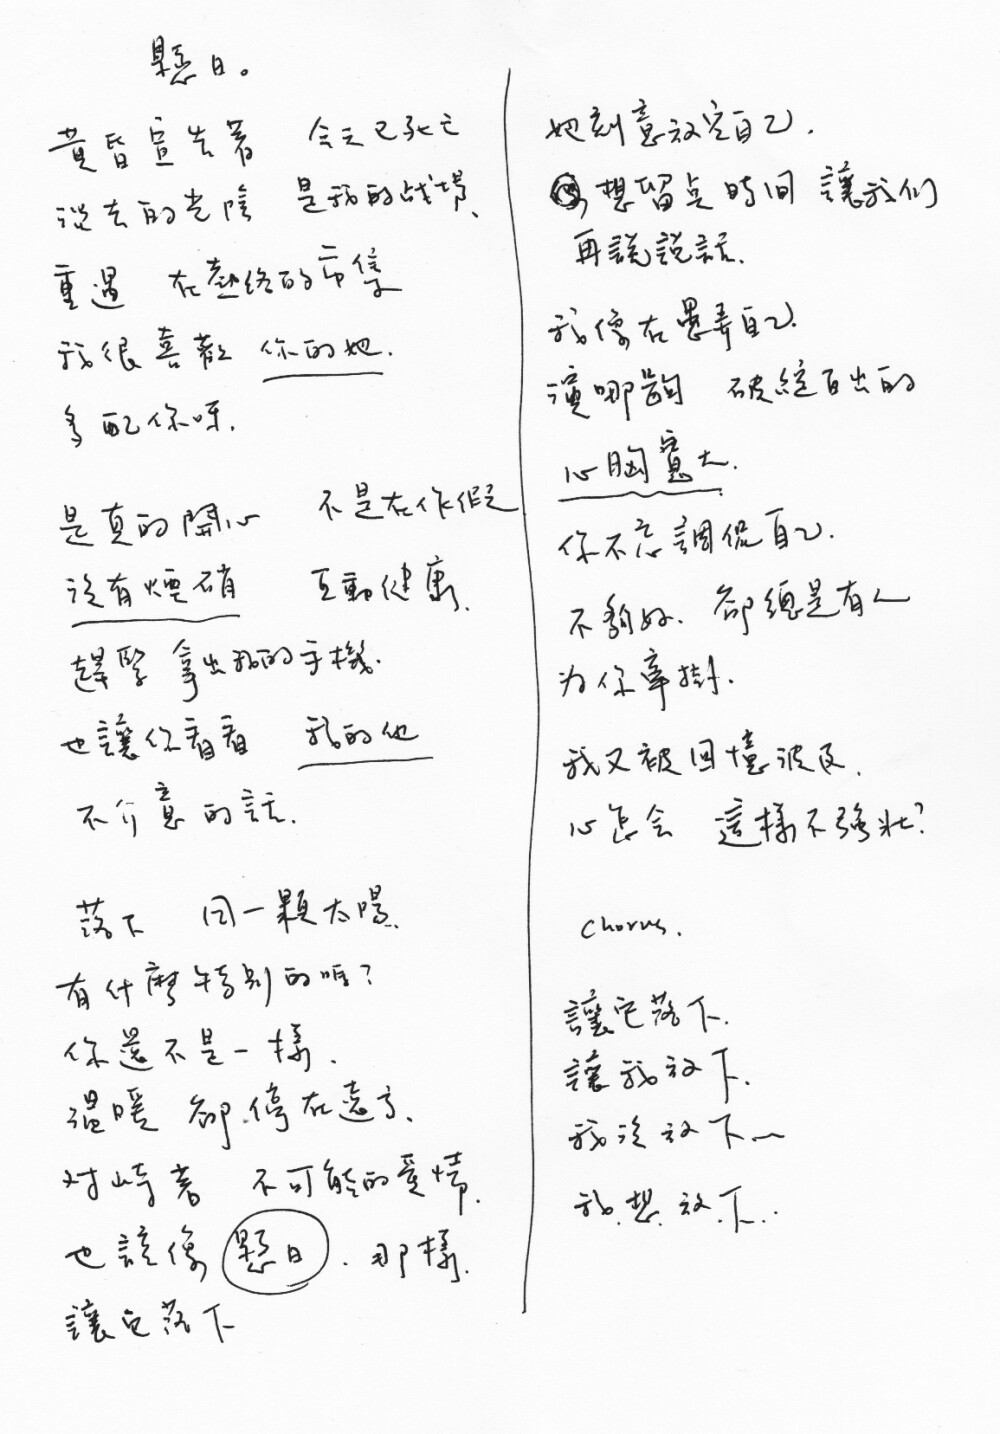 懸日。
黃昏宣告著 今天已死亡
從去的光陰 是我的战場、
重遇 在熱絡的市集
我很喜歡 你的她.
多配你呀.
是真的開心 不是在作假
沒有煙硝 互動健康.
趕緊拿出我的手機.
也讓你看看 我的他
不介意的話.
落下 同一顆太陽.
有什麼特別的嗎?
你還不是一樣.
溫暖 卻停在遠方.
对峙著 不可能的愛情.
也該像懸日.那樣.
讓它落下
她刻意放空自己.
想留点時间 讓我们
再說說話.
我像在愚弄自己.
演哪齣 破綻百出的
心胸寬大.
你不忘調侃自己.
不夠好. 卻總是有人
为你牽掛.
我又被回憶波及.
心怎会 這樣不強壯?
Chorus.
讓它落下.
讓我放下.
我沒放下~
我.想.放.下..